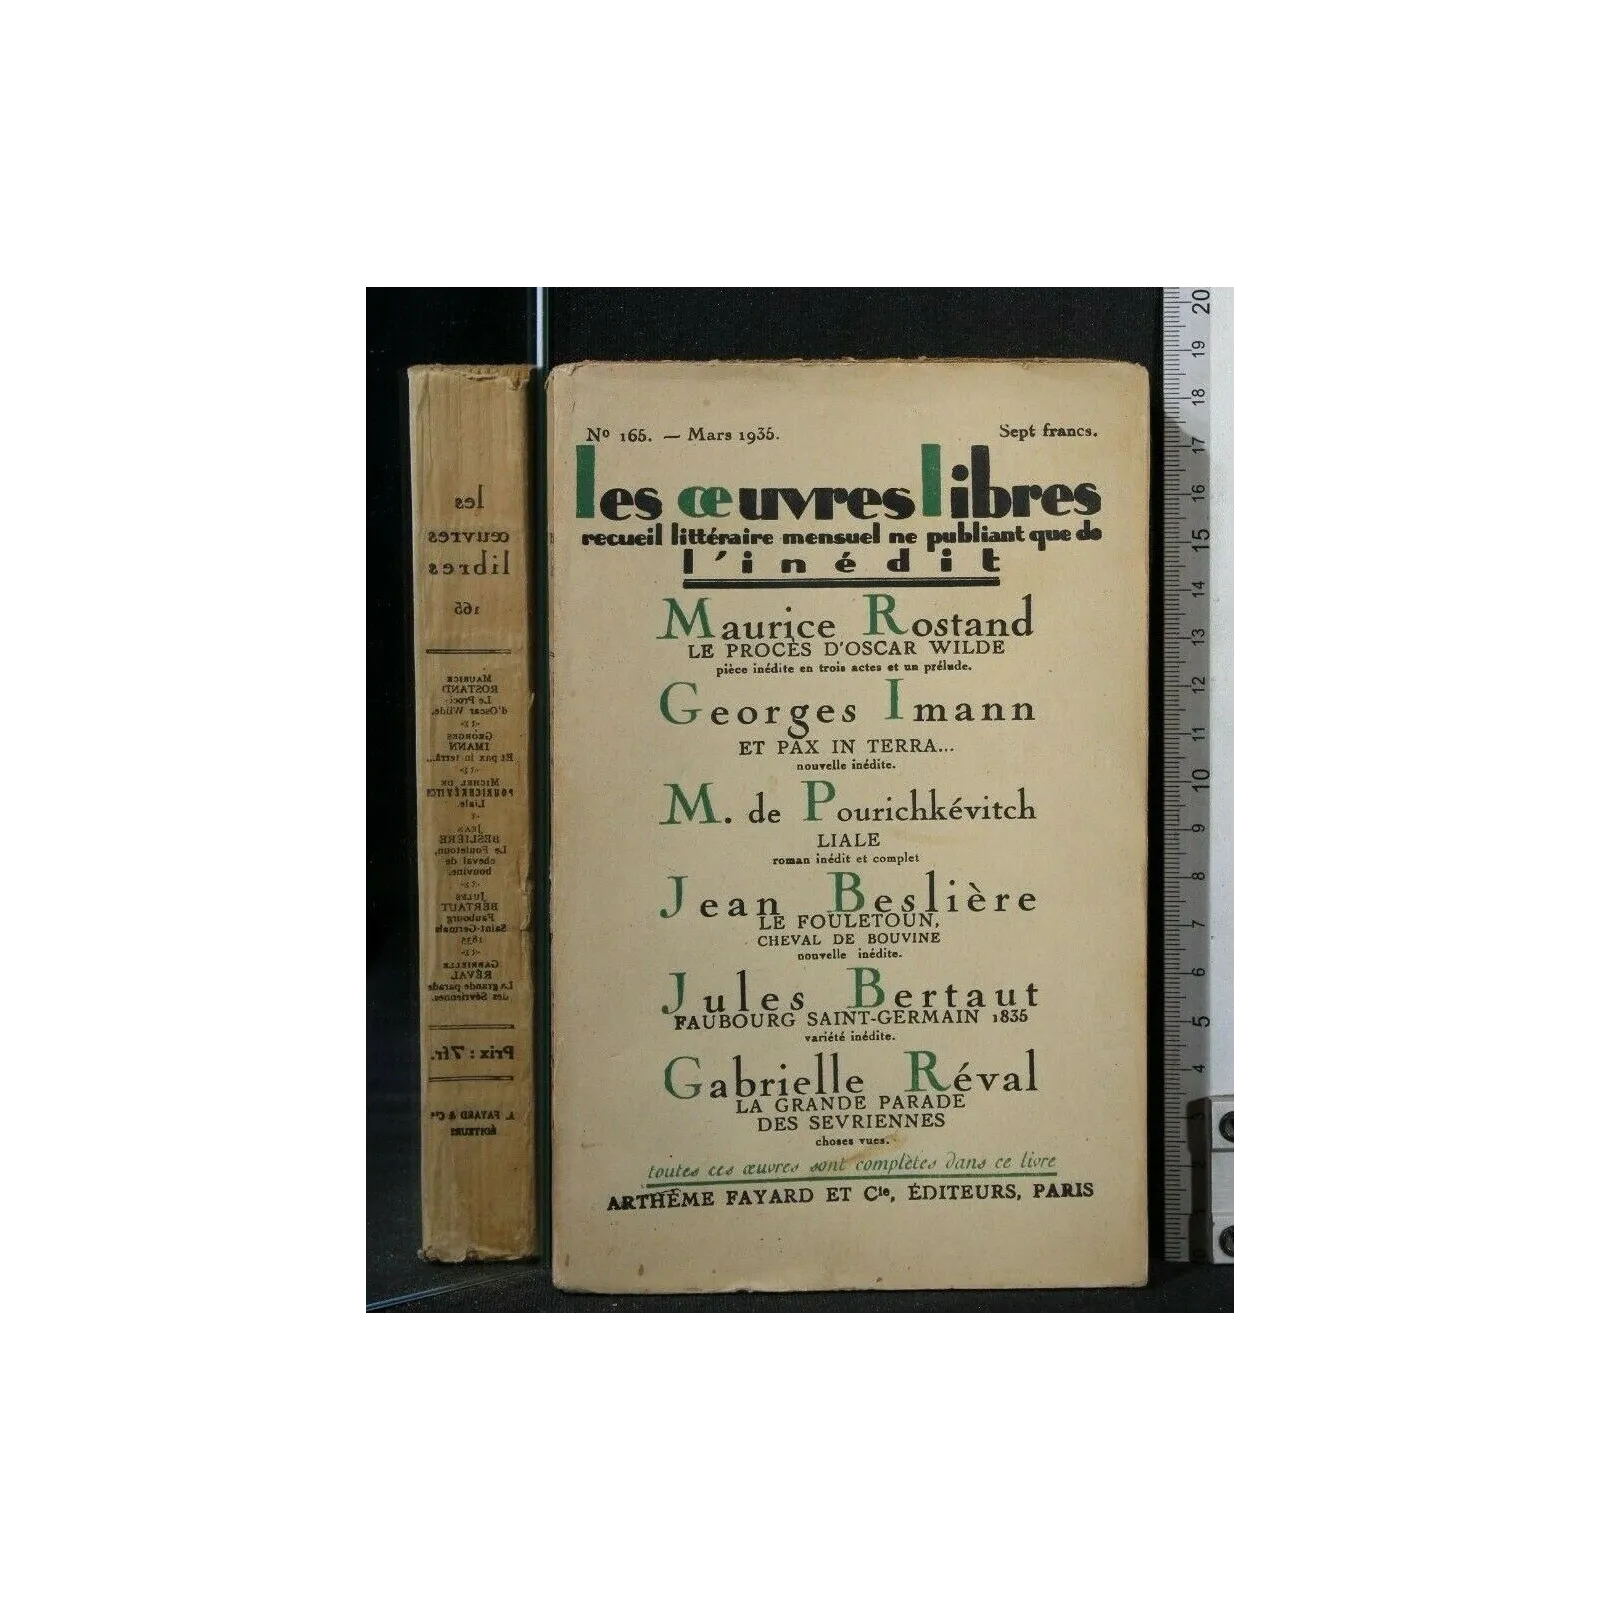 Nº 165. — Mars 1935.
Sept francs.
les œuvres libres
recueil littéraire mensuel ne publiant que de
l'inédit
Maurice Rostand
LE PROCÈS D'OSCAR WILDE
pièce inédite en trois actes et un prélude.
Georges Imann
ET PAX IN TERRA...
nouvelle inédite.
M. de Pourichkévitch
LIALE
roman inédit et complet
Jean Beslière
LE FOULETOUN,
CHEVAL DE BOUVINE
nouvelle inédite.
Jules Bertaut
FAUBOURG SAINT-GERMAIN 1835
variété inédite.
Gabrielle Réval
LA GRANDE PARADE
DES SEVRIENNES
choses vues.
toutes ces œuvres sont complètes dans ce livre
ARTHÈME FAYARD ET Cie, ÉDITEURS, PARIS
les
œuvres
libres
165
MAURICE
ROSTAND
Le Procès
d'Oscar Wilde.
GEORGES
IMANN
Et pax in terrâ...
MICHEL DE
POURICHKÉVITCH
Liale.
JEAN
BESLIÈRE
Le Fouletoun,
cheval de
bouvine.
JULES
BERTAUT
Faubourg
Saint-Germain
1835
GABRIELLE
RÉVAL
La grande parade
des Sévriennes.
Prix : 7 fr.
A. FAYARD & Cie
ÉDITEURS
20
19
18
17
16
15
14
13
12
11
10
9
8
7
6
5
4